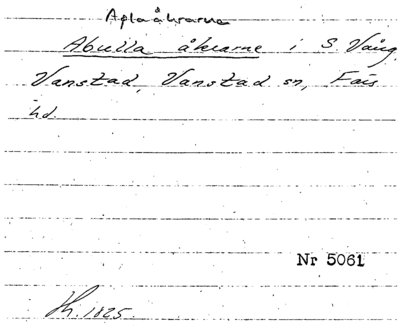 Aplaåkrarna
Abulla åkrarne i S Vång,
Vanstad, Vanstad sn, Färs
hd.
Nr 5061
Hf. 1825.